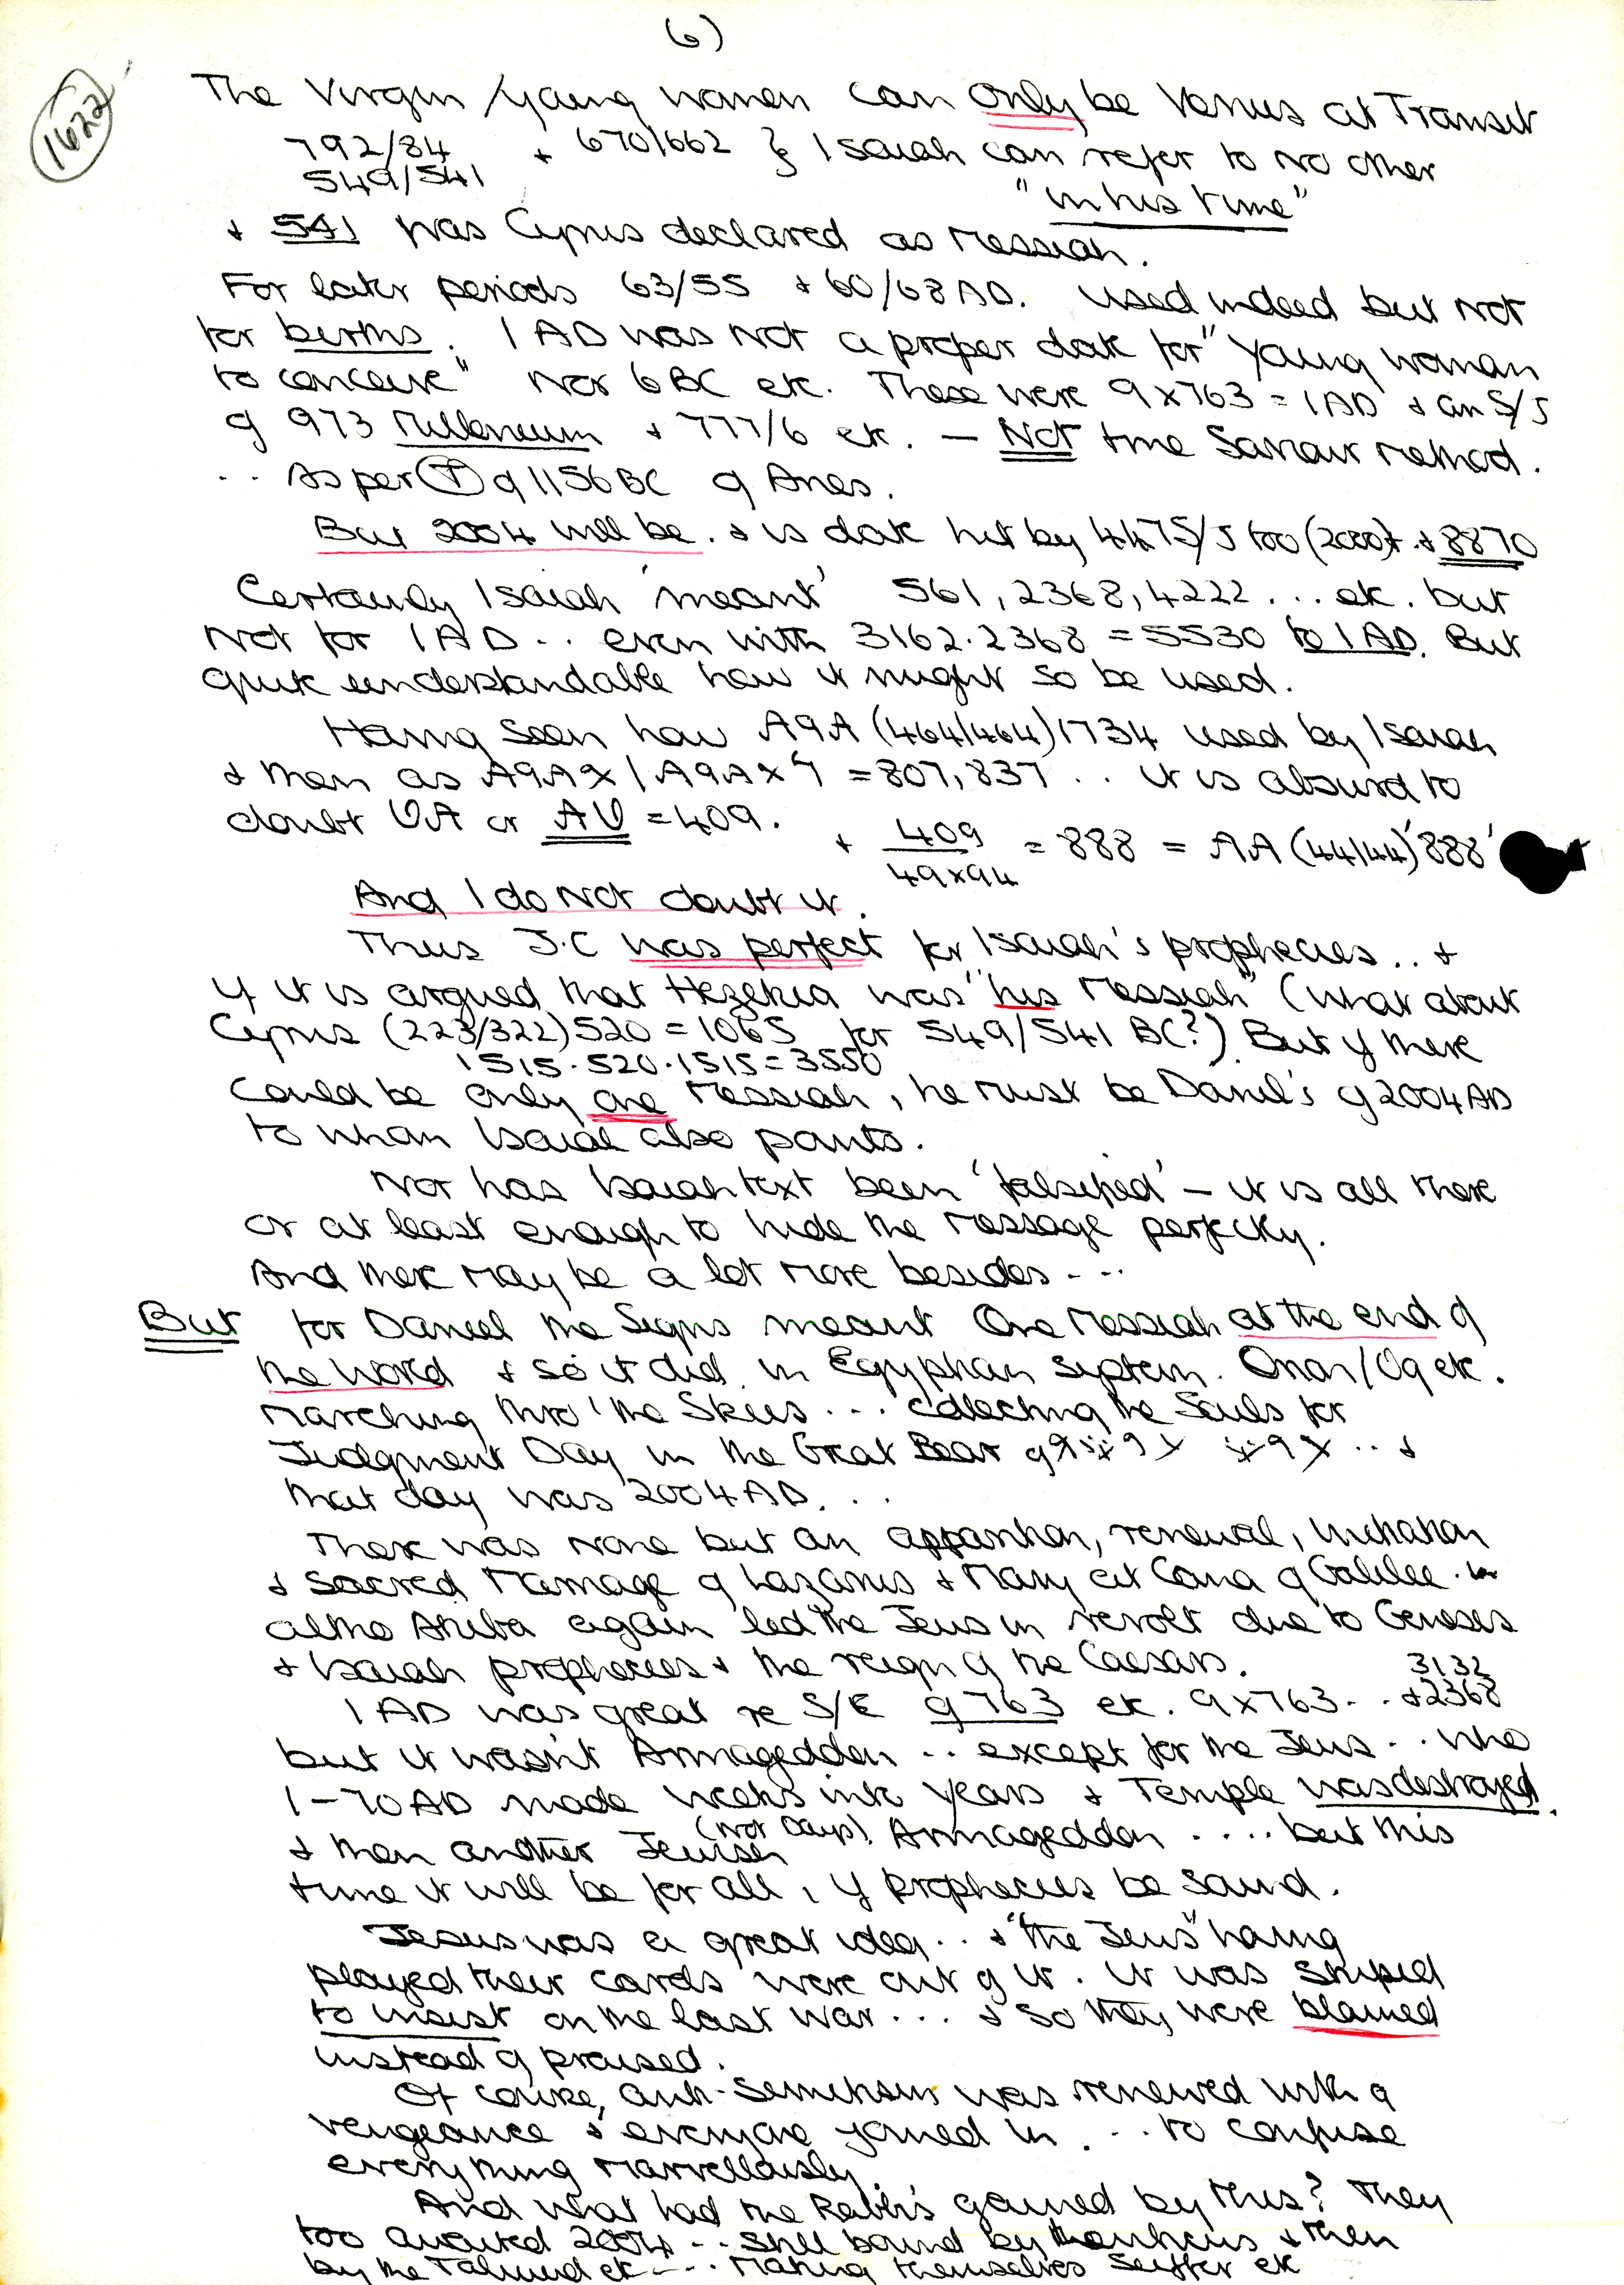 (6)
1622
The Virgin / young woman can only be Venus at Transit
792/84 + 670/662 } Isaiah can refer to no other
549/541 "in his time"
+ 541 was Cyrus declared as Messiah.
For later periods 63/55 + 60/68 AD. Used indeed but not
for births. 1 AD was not a proper date for "young woman
to conceive" nor 6 BC etc. These were 9x763 = 1 AD + an S/J
of 973 Millenium + 777/6 etc. — Not true Saviour method.
.. As per T of 1156 BC of Aries.
But 2004 will be. + is date hit by 447 S/J too (2000) + 8870
Certainly Isaiah 'meant' 561, 2368, 4222 ... etc. but
not for 1 AD .. even with 3162.2368 = 5530 to 1 AD. But
quite understandable how it might so be used.
Having seen how A9A (464/464) 1734 used by Isaiah
+ then as A9A9x/A9Ax9 = 807,837 .. it is absurd to
doubt VA or AV = 409.
+ 409/49x94 = 888 = AA (44/44) '888'
And I do not doubt it.
Thus J.C was perfect for Isaiah's prophecies .. +
if it is argued that Hezekia was "his Messiah" (what about
Cyrus (223/322) 520 = 1065 for 549/541 BC?) But if there
1515.520.1515 = 3550
could be only one Messiah, he must be Daniel's of 2004 AD
to whom Isaiah also points.
Nor has Isaiah text been 'falsified' – it is all there
or at least enough to hide the message perfectly.
And there may be a lot more besides - - -
But for Daniel the Signs meant One Messiah at the end of
the world + so it did in Egyptian system. Orion/Og etc.
marching thro' the Skies ... collecting the Souls for
Judgment Day in the Great Bear of .. +
that day was 2004 AD. ..
There was none but an apparition, renewal, imitation
+ sacred marriage of Lazarus + Mary at Cana of Galilee.
altho Akiba again led the Jews in revolt due to Genesis
+ Isaiah prophecies + the reign of the Caesars.
3132
1 AD was great re S/E of 763 etc. 9x763 .. +2368
but it wasn't Armageddon .. except for the Jews .. who
1–70 AD made weeks into years + Temple was destroyed.
(not Days)
+ then another Jewish Armageddon .... but this
time it will be for all, if prophecies be sound.
Jesus was a great idea .. + "the Jews" having
played their cards were out of it. It was stupid
to insist on the last war ... + so they were blamed
instead of praised.
Of course, anti-semitism was renewed with a
vengeance + everyone joined in. .. to confuse
everything marvellously.
And what had the Rabbi's gained by this? They
too awaited 2004 .. still bound by + then
by the Talmud etc - - - making themselves suffer etc